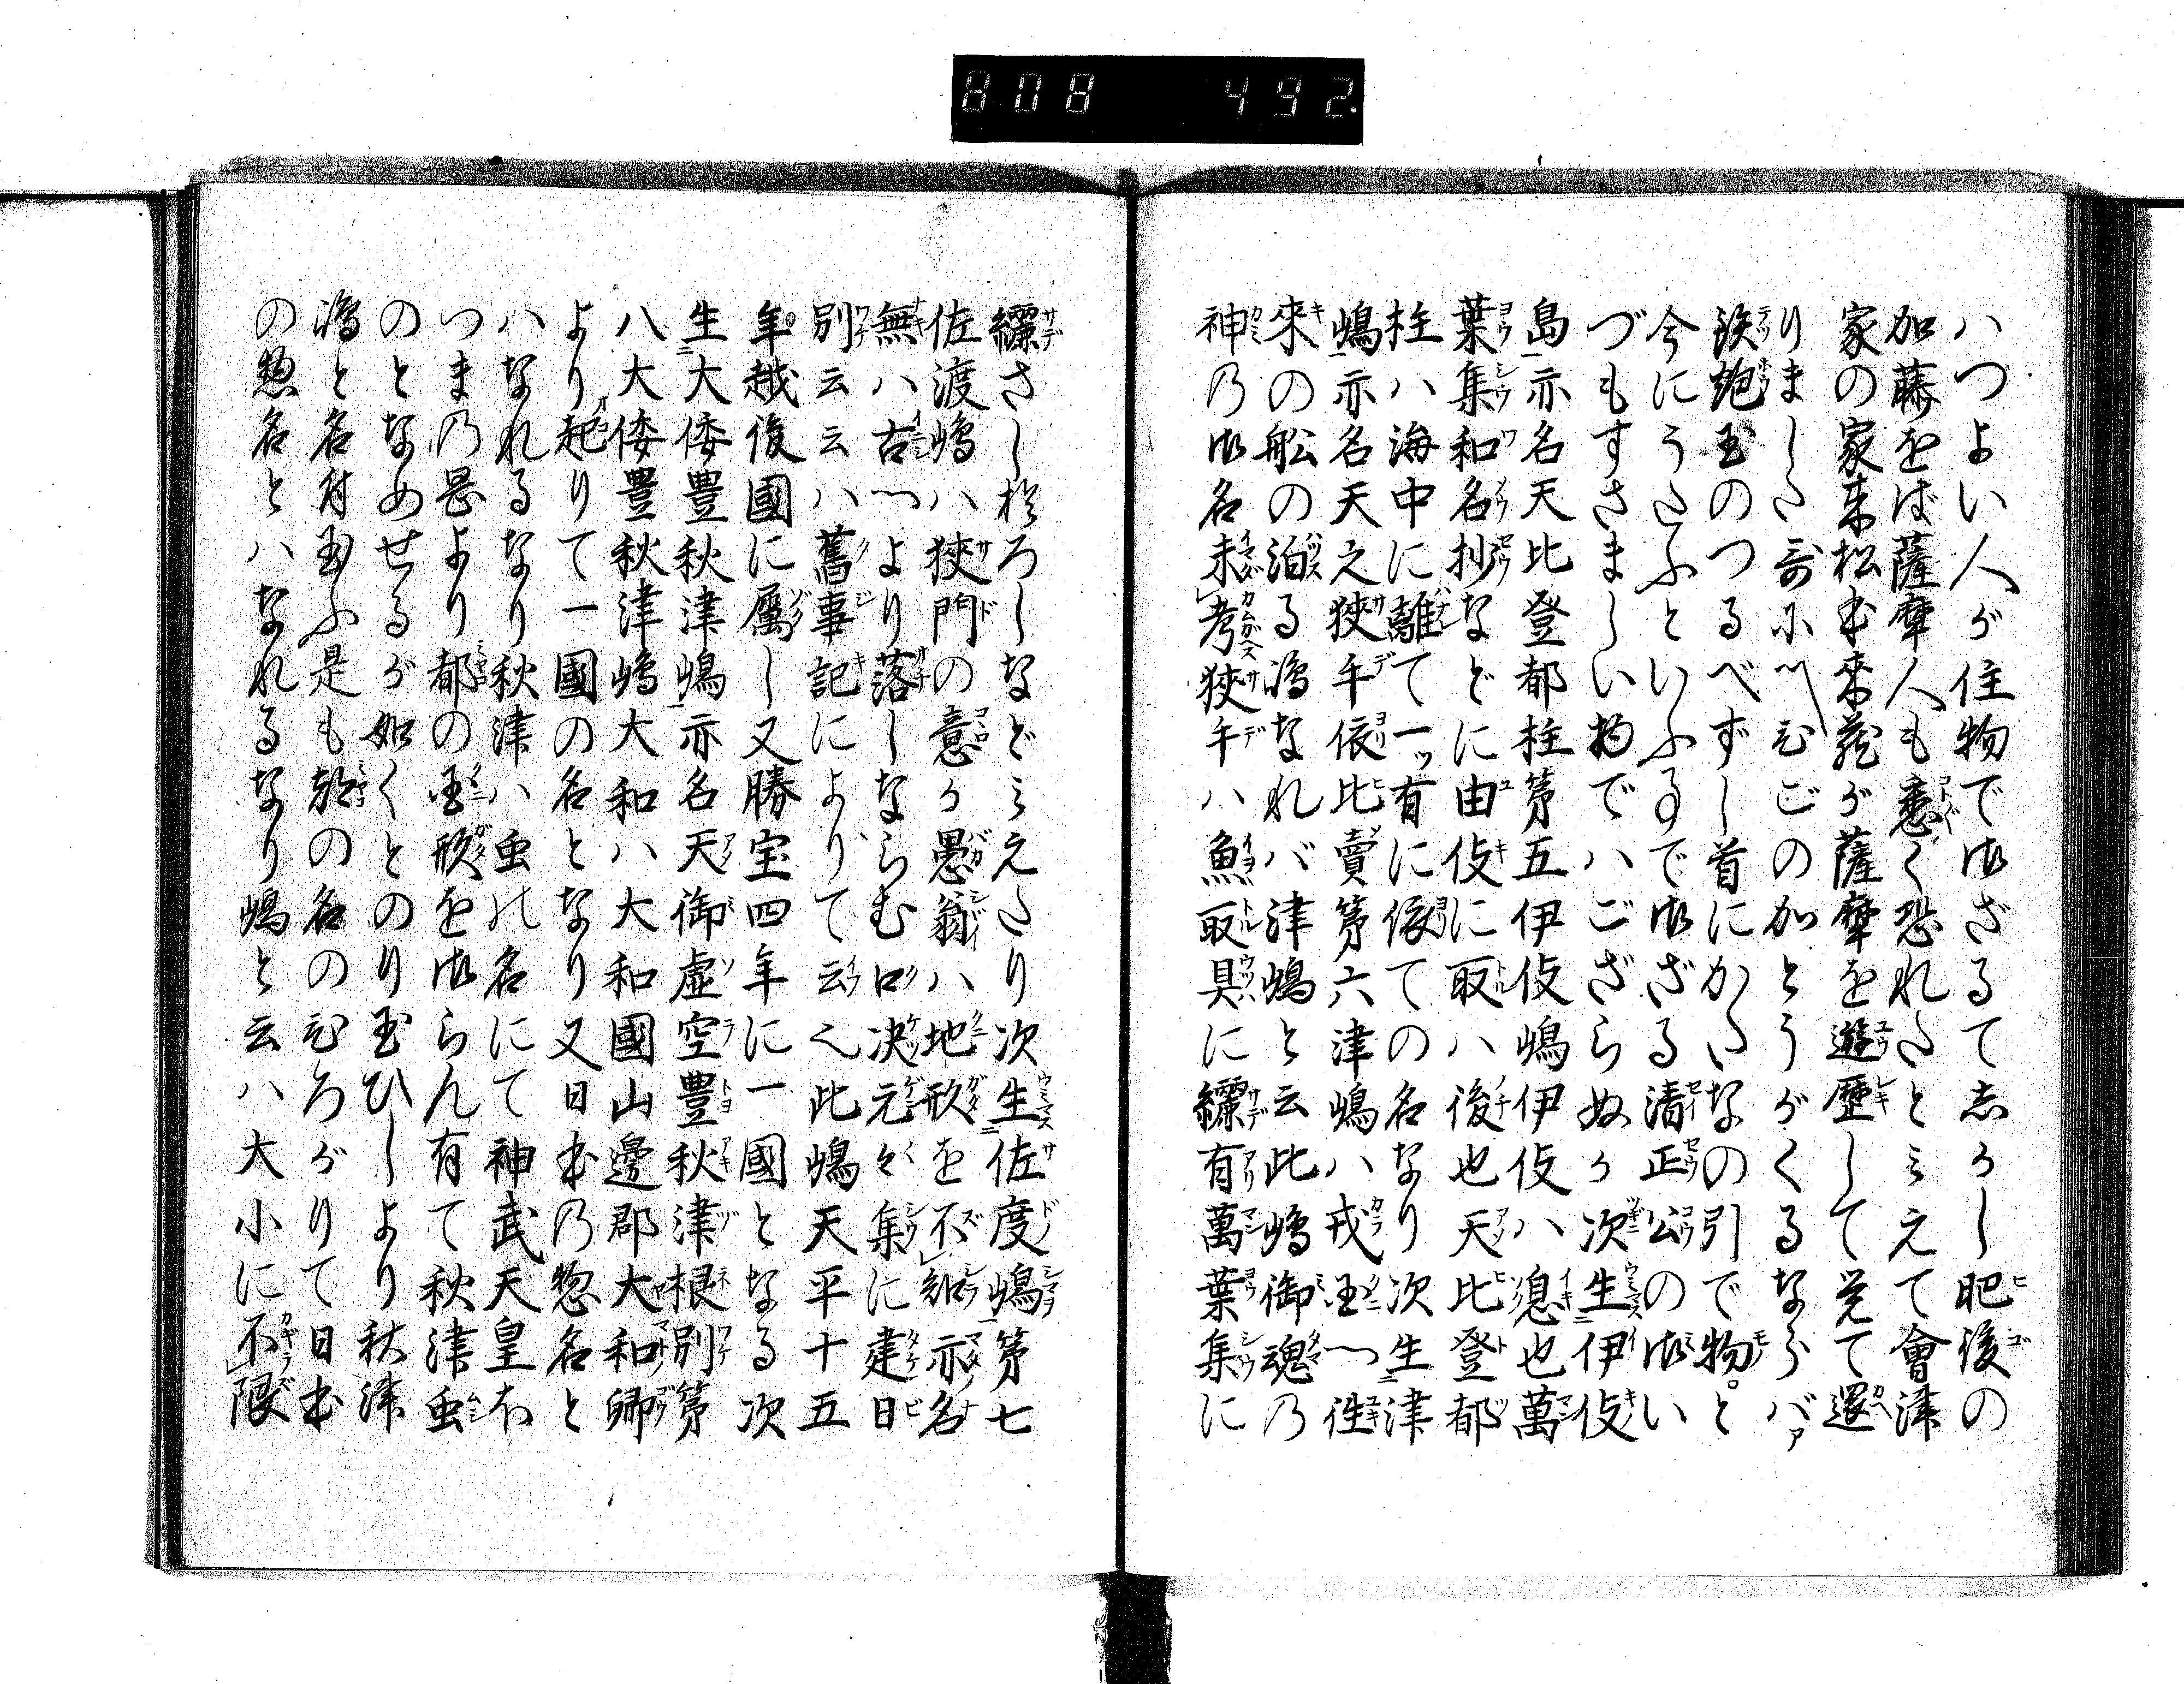 808 492.
ハつよい人が住物で御ざるて志かし肥後の
加藤をば薩摩人も悉く恐れたとミえて會津
家の家来松本来蔵が薩摩を遊歴して覚て還
りました哥小ひごの加とうがくるならバア
鉄炮玉のつるべずし首にかたなの引で物。と
今にうたふといふ事で御ざる清正公の御い
づもすさましい物でハござらぬか次生伊伎
島亦名天比登都柱第五伊伎嶋伊伎ハ息也萬
葉集和名抄などに由伎に取ハ後也天比登都
柱ハ海中に離て一ッ有に依ての名なり次生津
嶋亦名天之狭手依比賣第六津嶋ハ戎国へ徃
来の舩の泊る嶋なれバ津嶋と云此嶋御魂乃
神乃御名未考狭手ハ魚取具に纚有萬葉集に
纚さし栬ろしなどミえたり次生佐度嶋第七
佐渡嶋ハ狭門の意か愚翁ハ地形を不知亦名
無ハ古へより落しならむ口决元々集に建日
別云云ハ舊事記によりて云へ此嶋天平十五
年越後國に属し又勝宝四年に一國となる次
生大倭豊秋津嶋亦名天御虚空豊秋津根別第
八大倭豊秋津嶋大和ハ大和國山邊郡大和郷
より起りて一國の名となり又日本乃惣名と
ハなれるなり秋津ハ虫の名にて神武天皇わ
つま乃畠より都の国形を御らん有て秋津虫
のとなめせるが如くとのり玉ひしより秋津
嶋と名付玉ふ是も都の名のひろがりて日本
の惣名とハなれるなり嶋と云ハ大小に不限